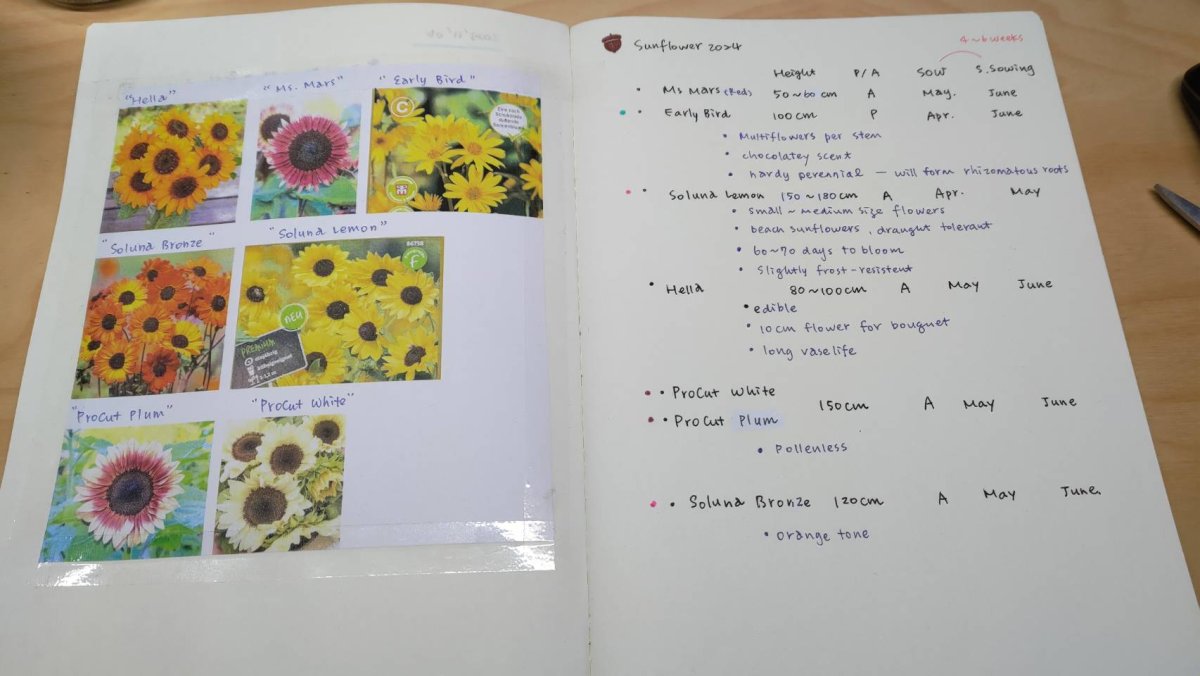 "Hella"
"Ms. Mars"
"Early Bird"
C
Eine nach
Schokolade
duftende
"Soluna Bronze"
"Soluna Lemon"
86758
F
NEU
PREMIUM
einjährig
"ProCut Plum"
"ProCut White"
Sunflower 2024
4~6 weeks
Height P/A SOW S. Sowing
• Ms Mars (Red) 50~60 cm A May. June
• Early Bird 100 cm P Apr. June
• Multiflowers per stem
• chocolatey scent
• hardy perennial — will form rhizomatous roots
• Soluna Lemon 150~180cm A Apr. May
• small ~ medium size flowers
• beach sunflowers, draught tolerant
• 60~70 days to bloom
• Slightly frost-resistent
• Hella 80~100cm A May June
• edible
• 10cm flower for bouquet
• long vaselife
• ProCut White
150cm A May June
• ProCut Plum
• Pollenless
• Soluna Bronze 120cm A May June.
• orange tone